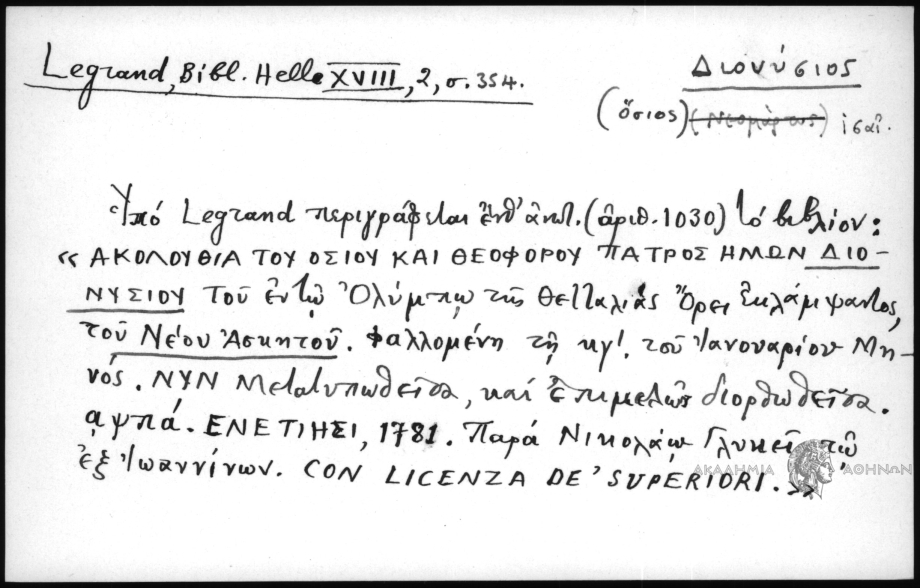 Legrand, Bibl. Helle XVIII, 2, σ. 354.
Διονύσιος
(ὅσιος) (Νεομάρτυς)
Ὑπό Legrand περιγράφεται (ἀριθ. 1030) τό βιβλίον:
« ΑΚΟΛΟΥΘΙΑ ΤΟΥ ΟΣΙΟΥ ΚΑΙ ΘΕΟΦΟΡΟΥ ΠΑΤΡΟΣ ΗΜΩΝ ΔΙΟ-
ΝΥΣΙΟΥ Τοῦ ἐν τῷ Ὀλύμπῳ τῆς Θετταλίας Ὄρει ἐκλάμψαντος,
τοῦ Νέου Ἀσκητοῦ. Ψαλλομένη τῇ κγ'. τοῦ Ἰανουαρίου Μη-
νός. ΝΥΝ Μετατυπωθεῖσα, καί ἐπιμελῶς διορθωθεῖσα.
αψπά. ΕΝΕΤΙΗΣΙ, 1781. Παρά Νικολάῳ Γλυκεῖ τῷ
ἐξ Ἰωαννίνων. CON LICENZA DE' SUPERIORI. »
ΑΚΑΔΗΜΙΑ ΑΘΗΝΩΝ